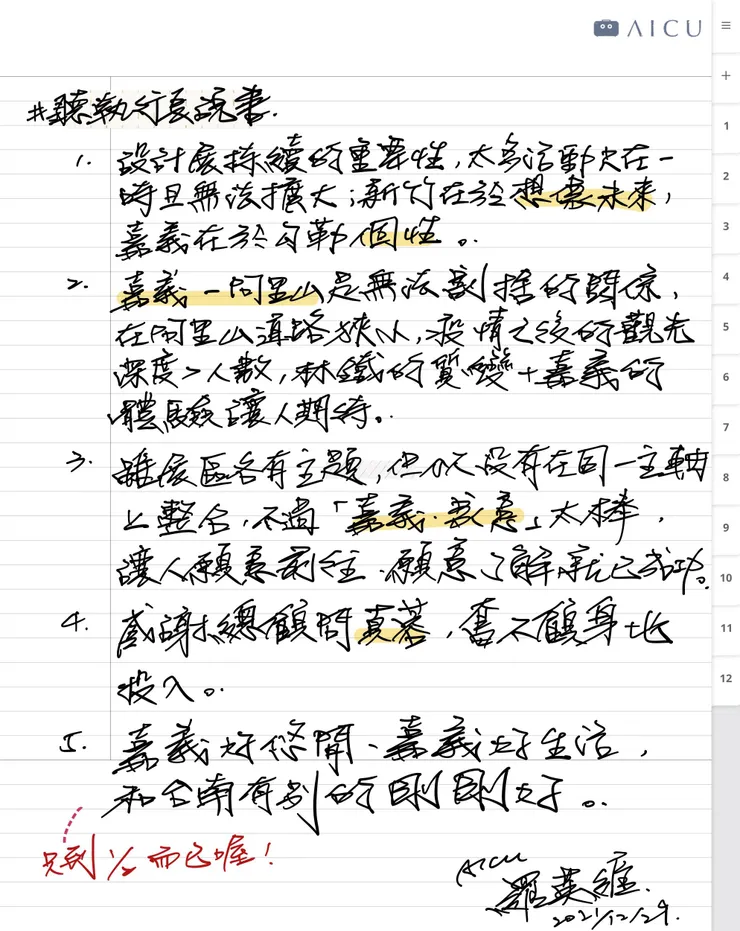 AICU
#聽執行長說書.
1. 設計展持續的重要性,太多活動只在一
時且無法擴大;新竹在於想像未來,
嘉義在於勾勒個性。
2. 嘉義—阿里山是無法割捨的關係,
在阿里山道路狹小,疫情之後的觀光
深度>人數,林鐵的質變+嘉義的
體驗讓人期待。
3. 雖展區各有主題,但似沒有在同一主軸
上整合,不過「嘉義·我意」太棒,
讓人願意前往、願意了解就已成功。
4. 感謝總顧問真蓉,奮不顧身地
投入。
5. 嘉義好悠閒、嘉義好生活,
和台南有別的剛剛好。
只到1/2而已喔!
AICU
羅英維.
2021/12/29.
1
2
3
4
5
6
7
8
9
10
11
12